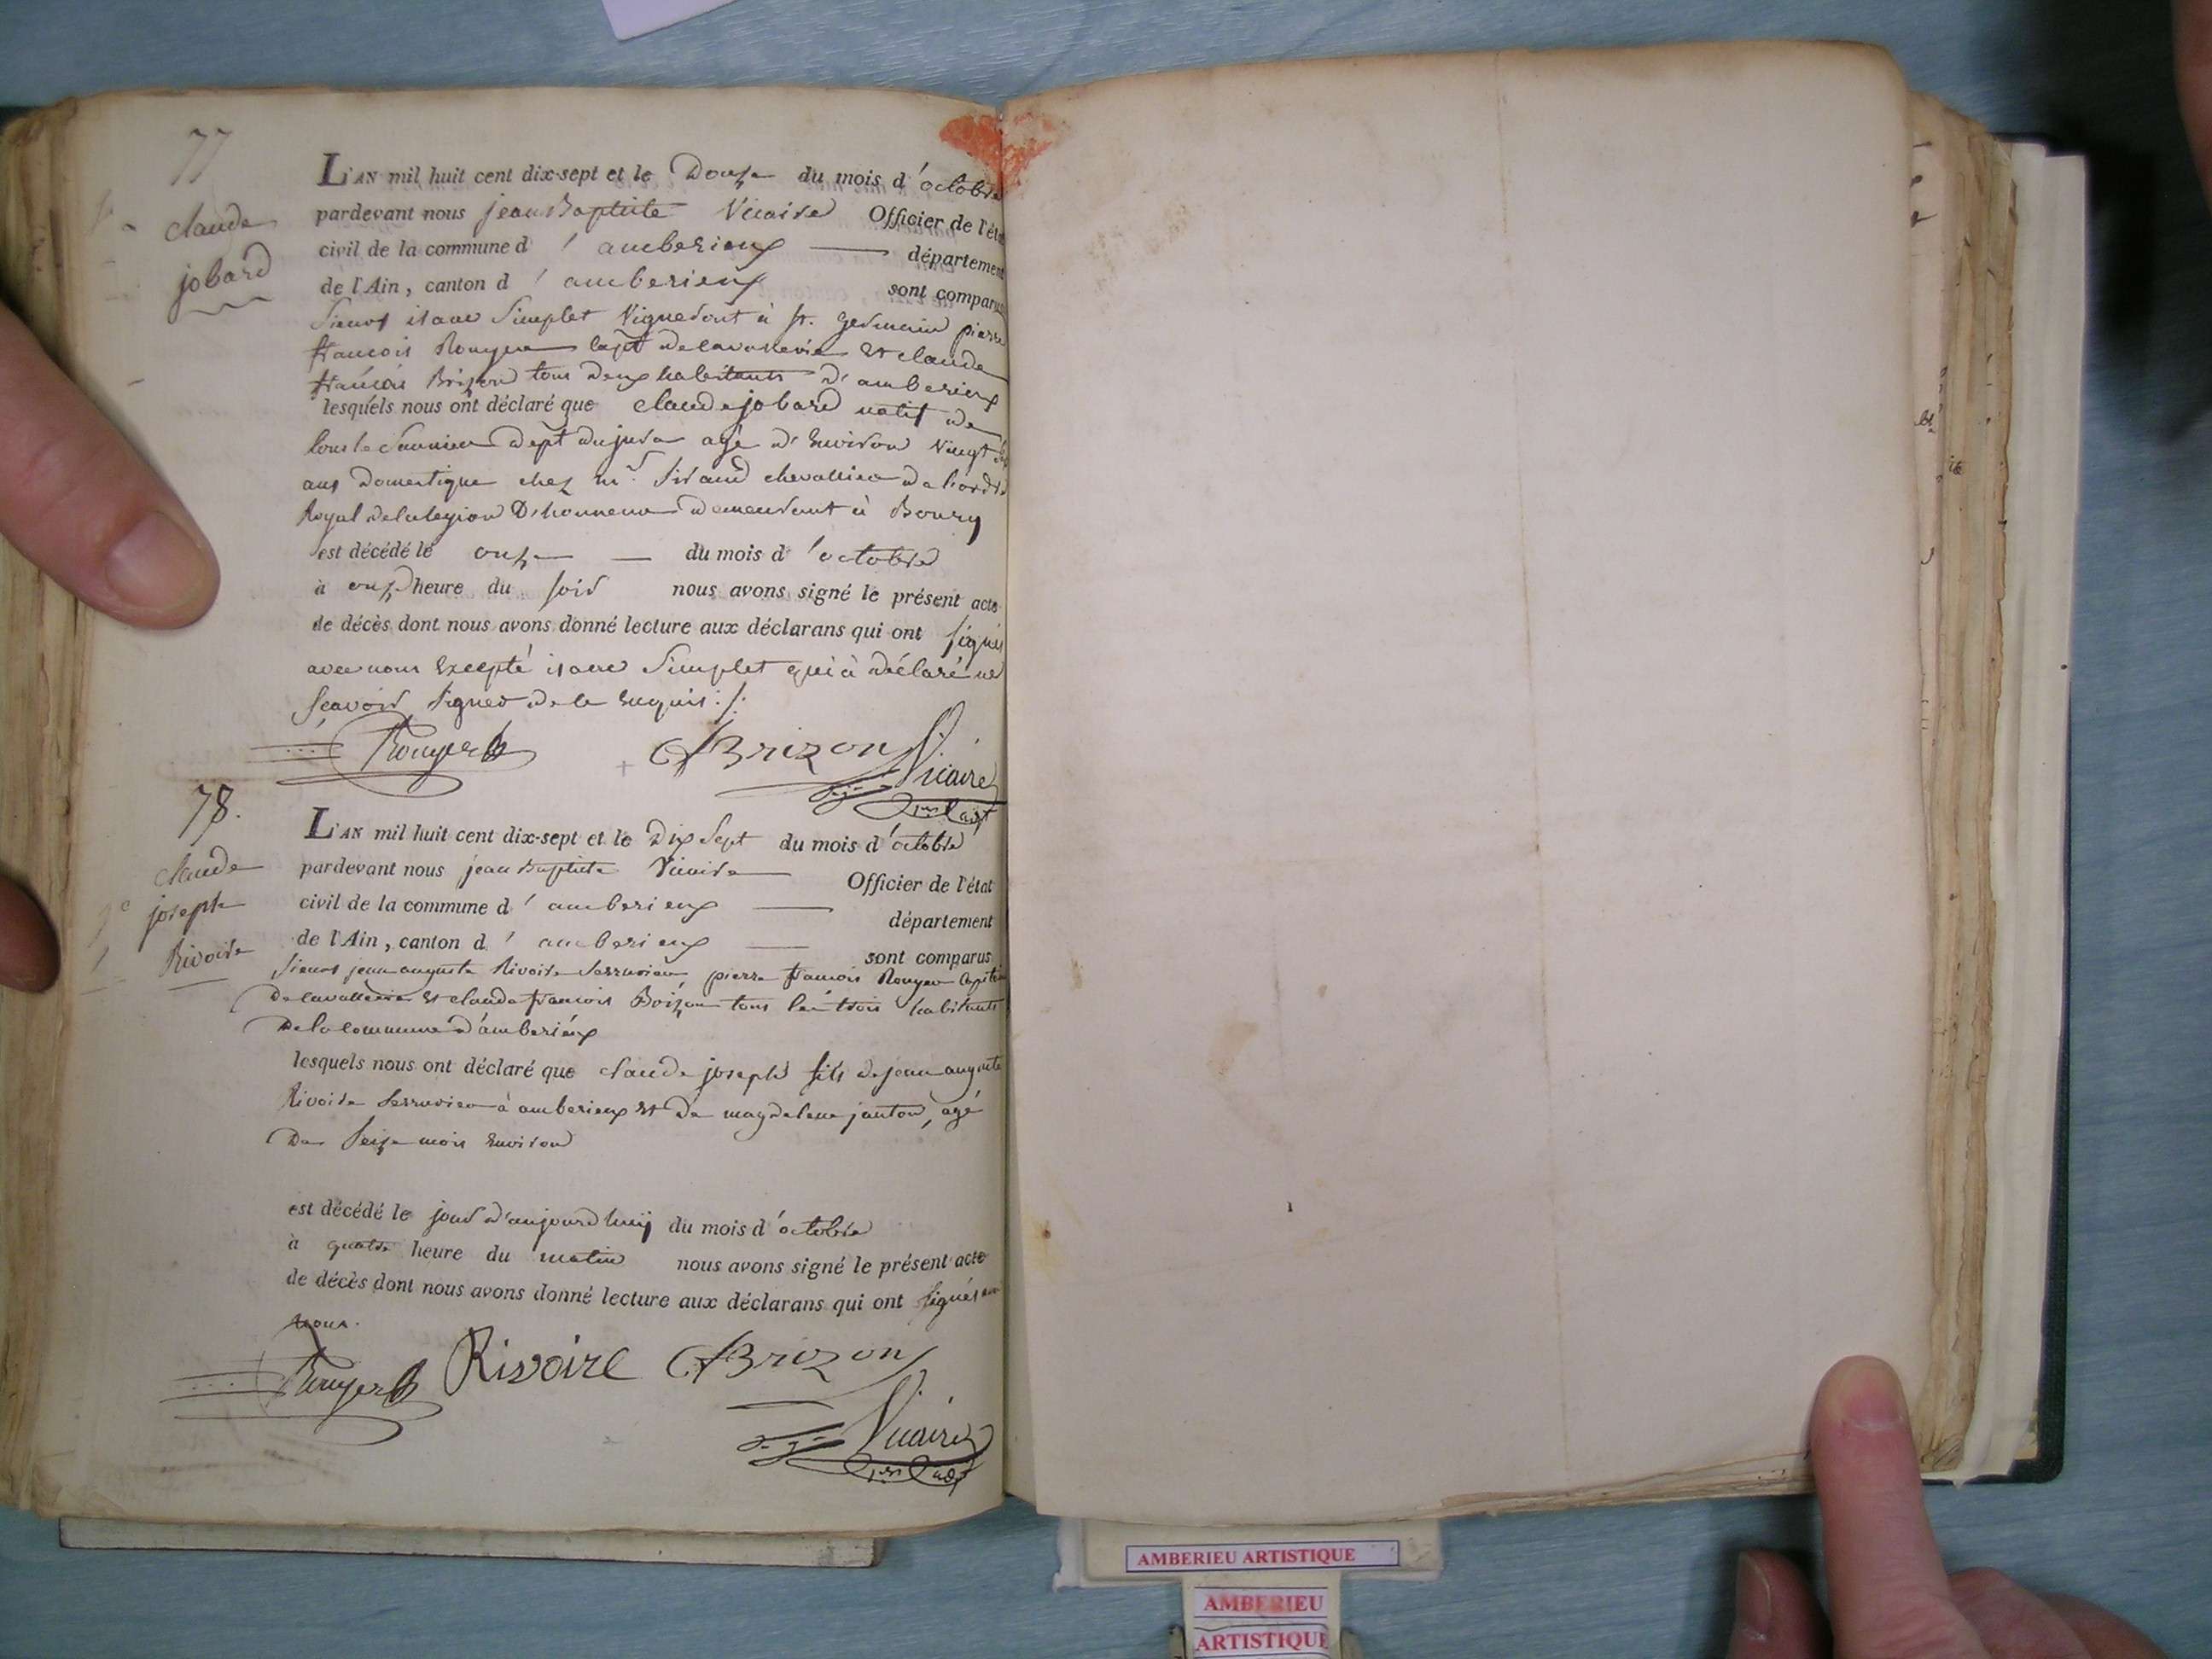 77
claude
jobard
L'AN mil huit cent dix-sept et le Douze du mois d'octobre
pardevant nous jean Baptiste Vicaire Officier de l'état
civil de la commune d'amberieux — département
de l'Ain, canton d'amberieux sont comparus
Sieurs isaac Simplet Vigneront à St. germain pierre
françois Rouyer capt de cavallerie Et claude
françois Brizon tous deux habitants d'amberieux
lesquels nous ont déclaré que claude jobard natif de
lons le Saunier dept du jura agé d'Environ Vingt
ans domestique chez mr. Siraud chevallier de l'ordre
Royal de la legion D'honneur demeurant à Bourg
est décédé le onze — du mois d'octobre
à onze heure du soir nous avons signé le présent acte
de décès dont nous avons donné lecture aux déclarans qui ont signés
avec nous Excepté isaac Simplet qui à déclaré ne
sçavoir signer de ce Enquis ./.
Rouyer CfBrizon Vicaire
1er adjt
78.
claude
joseph
Rivoire
L'AN mil huit cent dix-sept et le Dix Sept du mois d'octobre
pardevant nous jean Baptiste Vicaire Officier de l'état
civil de la commune d'amberieux — département
de l'Ain, canton d'amberieux — sont comparus
Sieurs jean auguste Rivoire Serrurier pierre françois Rouyer Capitaine
De cavallerie Et claude françois Brizon tous les trois habitants
De la commune d'amberieux
lesquels nous ont déclaré que claude joseph fils de jean auguste
Rivoire Serrurier à amberieux Et De magdelene janton, agé
De Seize mois Environ
est décédé le jour d'aujourd'huij du mois d'octobre
à quatre heure du matin nous avons signé le présent acte
de décès dont nous avons donné lecture aux déclarans qui ont signés avec
nous.
Rouyer Rivoire CfBrizon
Vicaire
1er adjt
AMBERIEU ARTISTIQUE
AMBERIEU
ARTISTIQUE